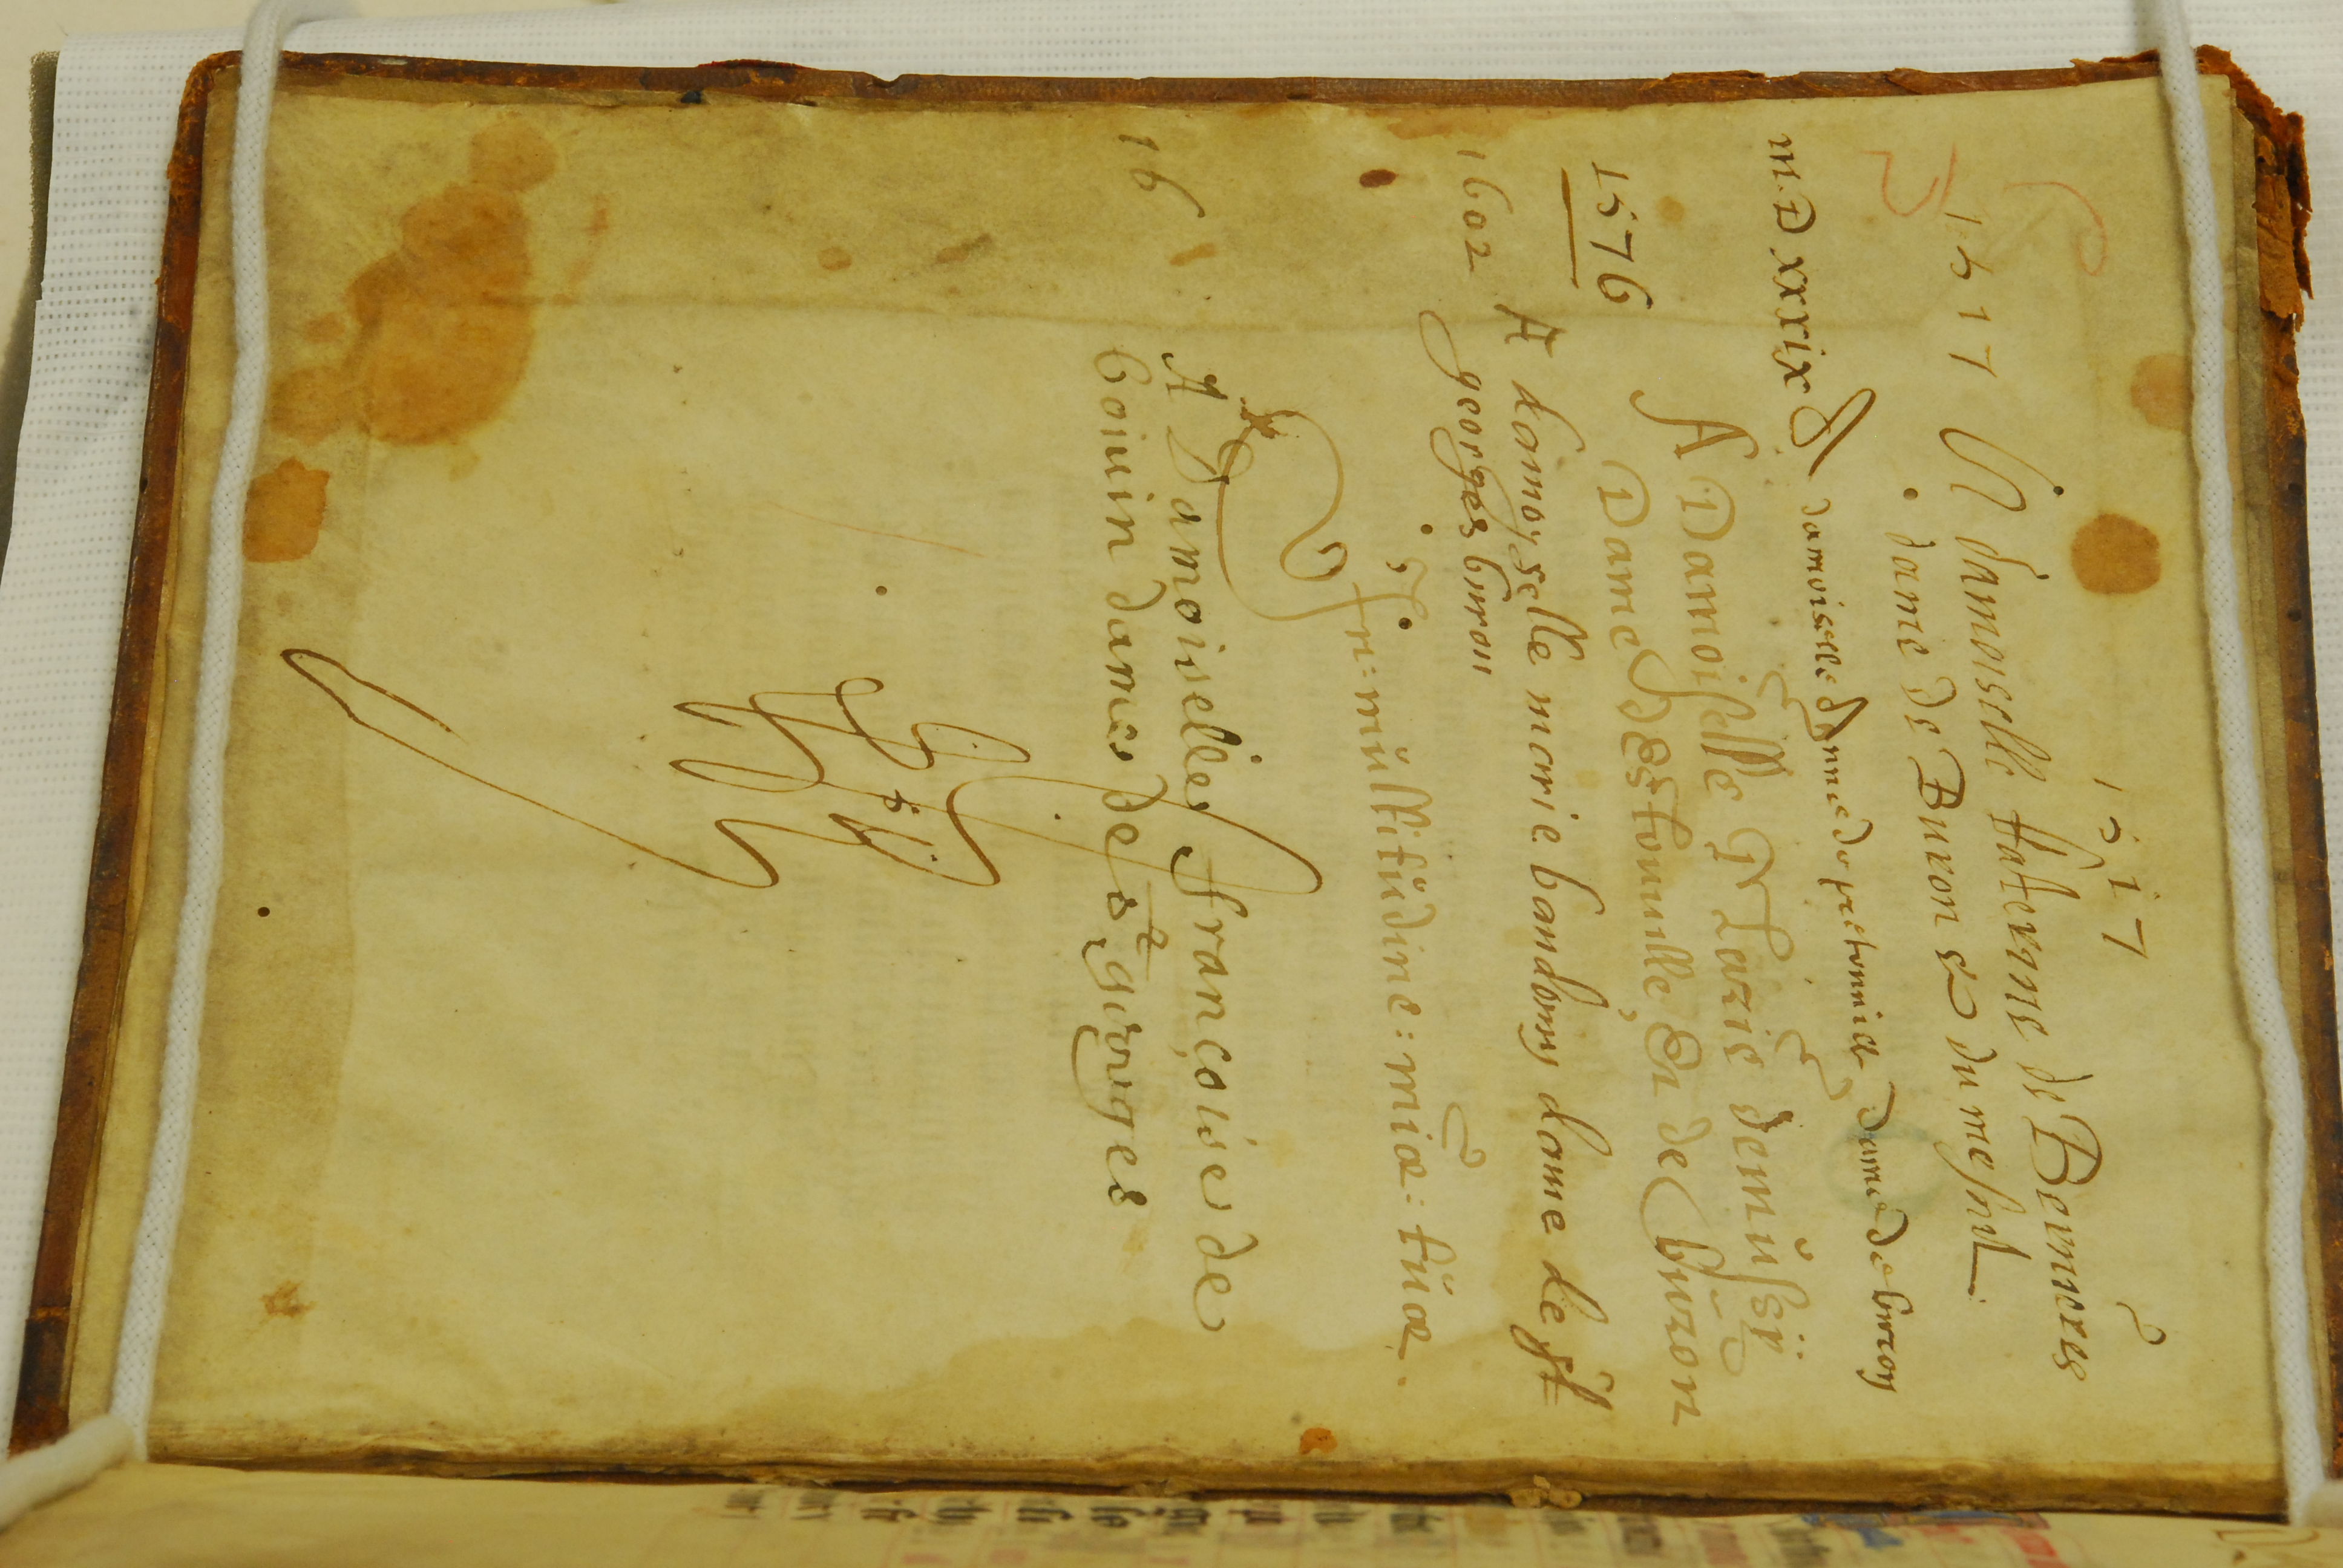 1517
1517 A damoiselle Katerine de Beaunes
dame de Buron et du mesnil
m.D xxxix A damoiselle Anne de pretouville dame de buron
1576 A Damoiselle Marie
Dame destouuille Et de Buron
1602 A damoyselle marie baudouy dame de st
georges buron
In: multitudine: mia: tua.
16 A Damoiselle francoise de
boiuin dames de st georges